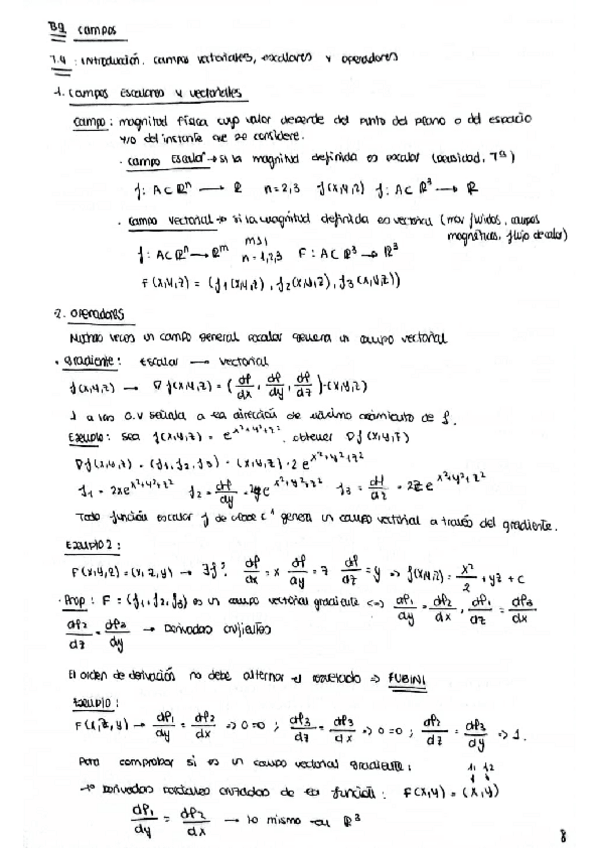 B9 campos
7.4: introducción. campos vectoriales, escalares y operadores
1. campos escalares y vectoriales
campo: magnitud física cuyo valor depende del punto del plano o del espacio
y/o del instante que se considere.
· campo escalar → si la magnitud definida es escalar (densidad, Tª)
f: A⊂ℝⁿ → ℝ n=2,3 f(x,y,z) f: A⊂ℝ³ → ℝ
· campo vectorial → si la magnitud definida es vectorial (mov fluidos, campos
magnéticos, flujo de calor)
f: A⊂ℝⁿ → ℝᵐ n=1,2,3 F: A⊂ℝ³ → ℝ³
F(x,y,z) = (f₁(x,y,z), f₂(x,y,z), f₃(x,y,z))
2. operadores
Muchas veces un campo general escalar genera un campo vectorial
· gradiente: escalar → vectorial
f(x,y,z) → ∇f(x,y,z) = (df/dx, df/dy, df/dz)·(x,y,z)
señala a la dirección de máximo crecimiento de f.
Ejemplo: sea f(x,y,z) = e^x²+y²+z². obtener ∇f(x,y,z)
∇f(x,y,z) = (f₁, f₂, f₃) = (x,y,z)·2e^x²+y²+z²
f₁ = 2xe^x²+y²+z² f₂ = df/dy = 2ye^x²+y²+z² f₃ = df/dz = 2ze^x²+y²+z²
Toda función escalar f de clase C¹ genera un campo vectorial a través del gradiente.
Ejemplo 2:
F(x,y,z) = (x,z,y) → ∃f? df/dx = x df/dy = z df/dz = y ⇒ f(x,y,z) = x²/2 + yz + C
· Prop: F = (f₁, f₂, f₃) es un campo vectorial gradiente ⇔ df₁/dy = df₂/dx, df₁/dz = df₃/dx
df₂/dz = df₃/dy → Derivadas cruzadas
El orden de derivación no debe alterar el resultado ⇒ FUBINI
Ejemplo:
F(x,z,y) → df₁/dy = df₂/dx ⇒ 0=0; df₃/dz = df₃/dx ⇒ 0=0; df₂/dz = df₃/dy ⇒ 1.
Para comprobar si es un campo vectorial gradiente:
→ Derivadas parciales cruzadas de la función: F(x,y) = (x,y)
f₁ f₂
df₁/dy = df₂/dx → lo mismo en ℝ³
8